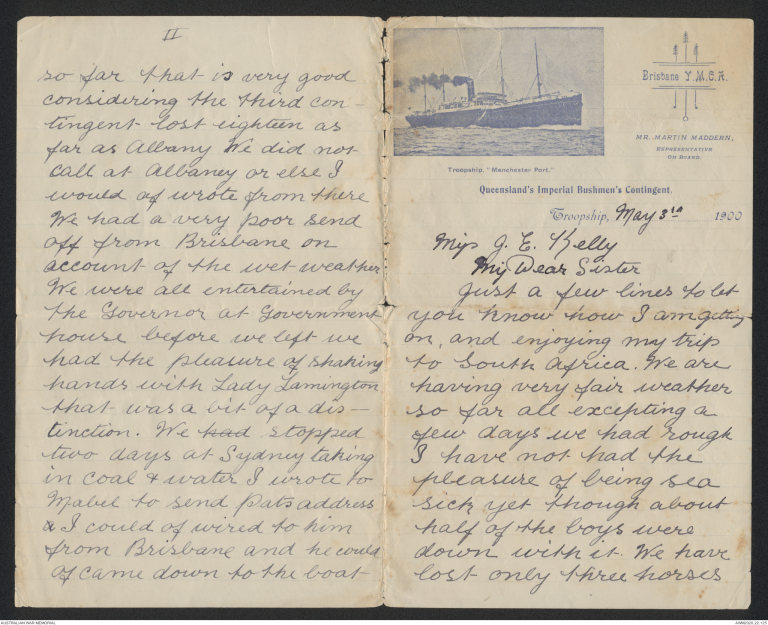 Brisbane Y.M.C.A.
MR. MARTIN MADDERN,
REPRESENTATIVE
ON BOARD.
Troopship, "Manchester Port."
Queensland's Imperial Bushmen's Contingent.
Troopship, May 3rd 1900
Miss J. E. Kelly
My Dear Sister
Just a few lines to let
you know how I am getting
on, and enjoying my trip
to South Africa. We are
having very fair weather
so far all excepting a
few days we had rough
I have not had the
pleasure of being sea
sick yet though about
half of the boys were
down with it. We have
lost only three horses
II
so far that is very good
considering the third con-
tingent lost eighteen as
far as Albany We did not
call at Albaney or else I
would of wrote from there
We had a very poor send
off from Brisbane on
account of the wet weather
We were all entertained by
the Governor at Government
house before we left we
had the pleasure of shaking
hands with Lady Lamington
that was a bit of a dis-
tinction. We had stopped
two days at Sydney taking
in coal & water I wrote to
Mabel to send Pats address
& I could of wired to him
from Brisbane and he could
of came down to the boat
AUSTRALIAN WAR MEMORIAL
AWM2020.22.125